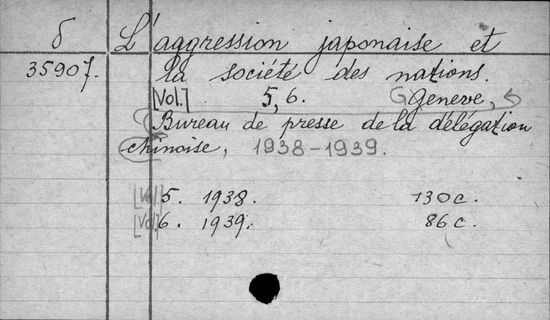 б L'aggression japonaise et
35907. la société des nations.
[Vol.] 5, 6. Geneve,
Bureau de presse de la délégation
chinoise, 1938-1939.
[Vol.] 5. 1938. 130 c.
[Vol.] 6. 1939. 86 c.